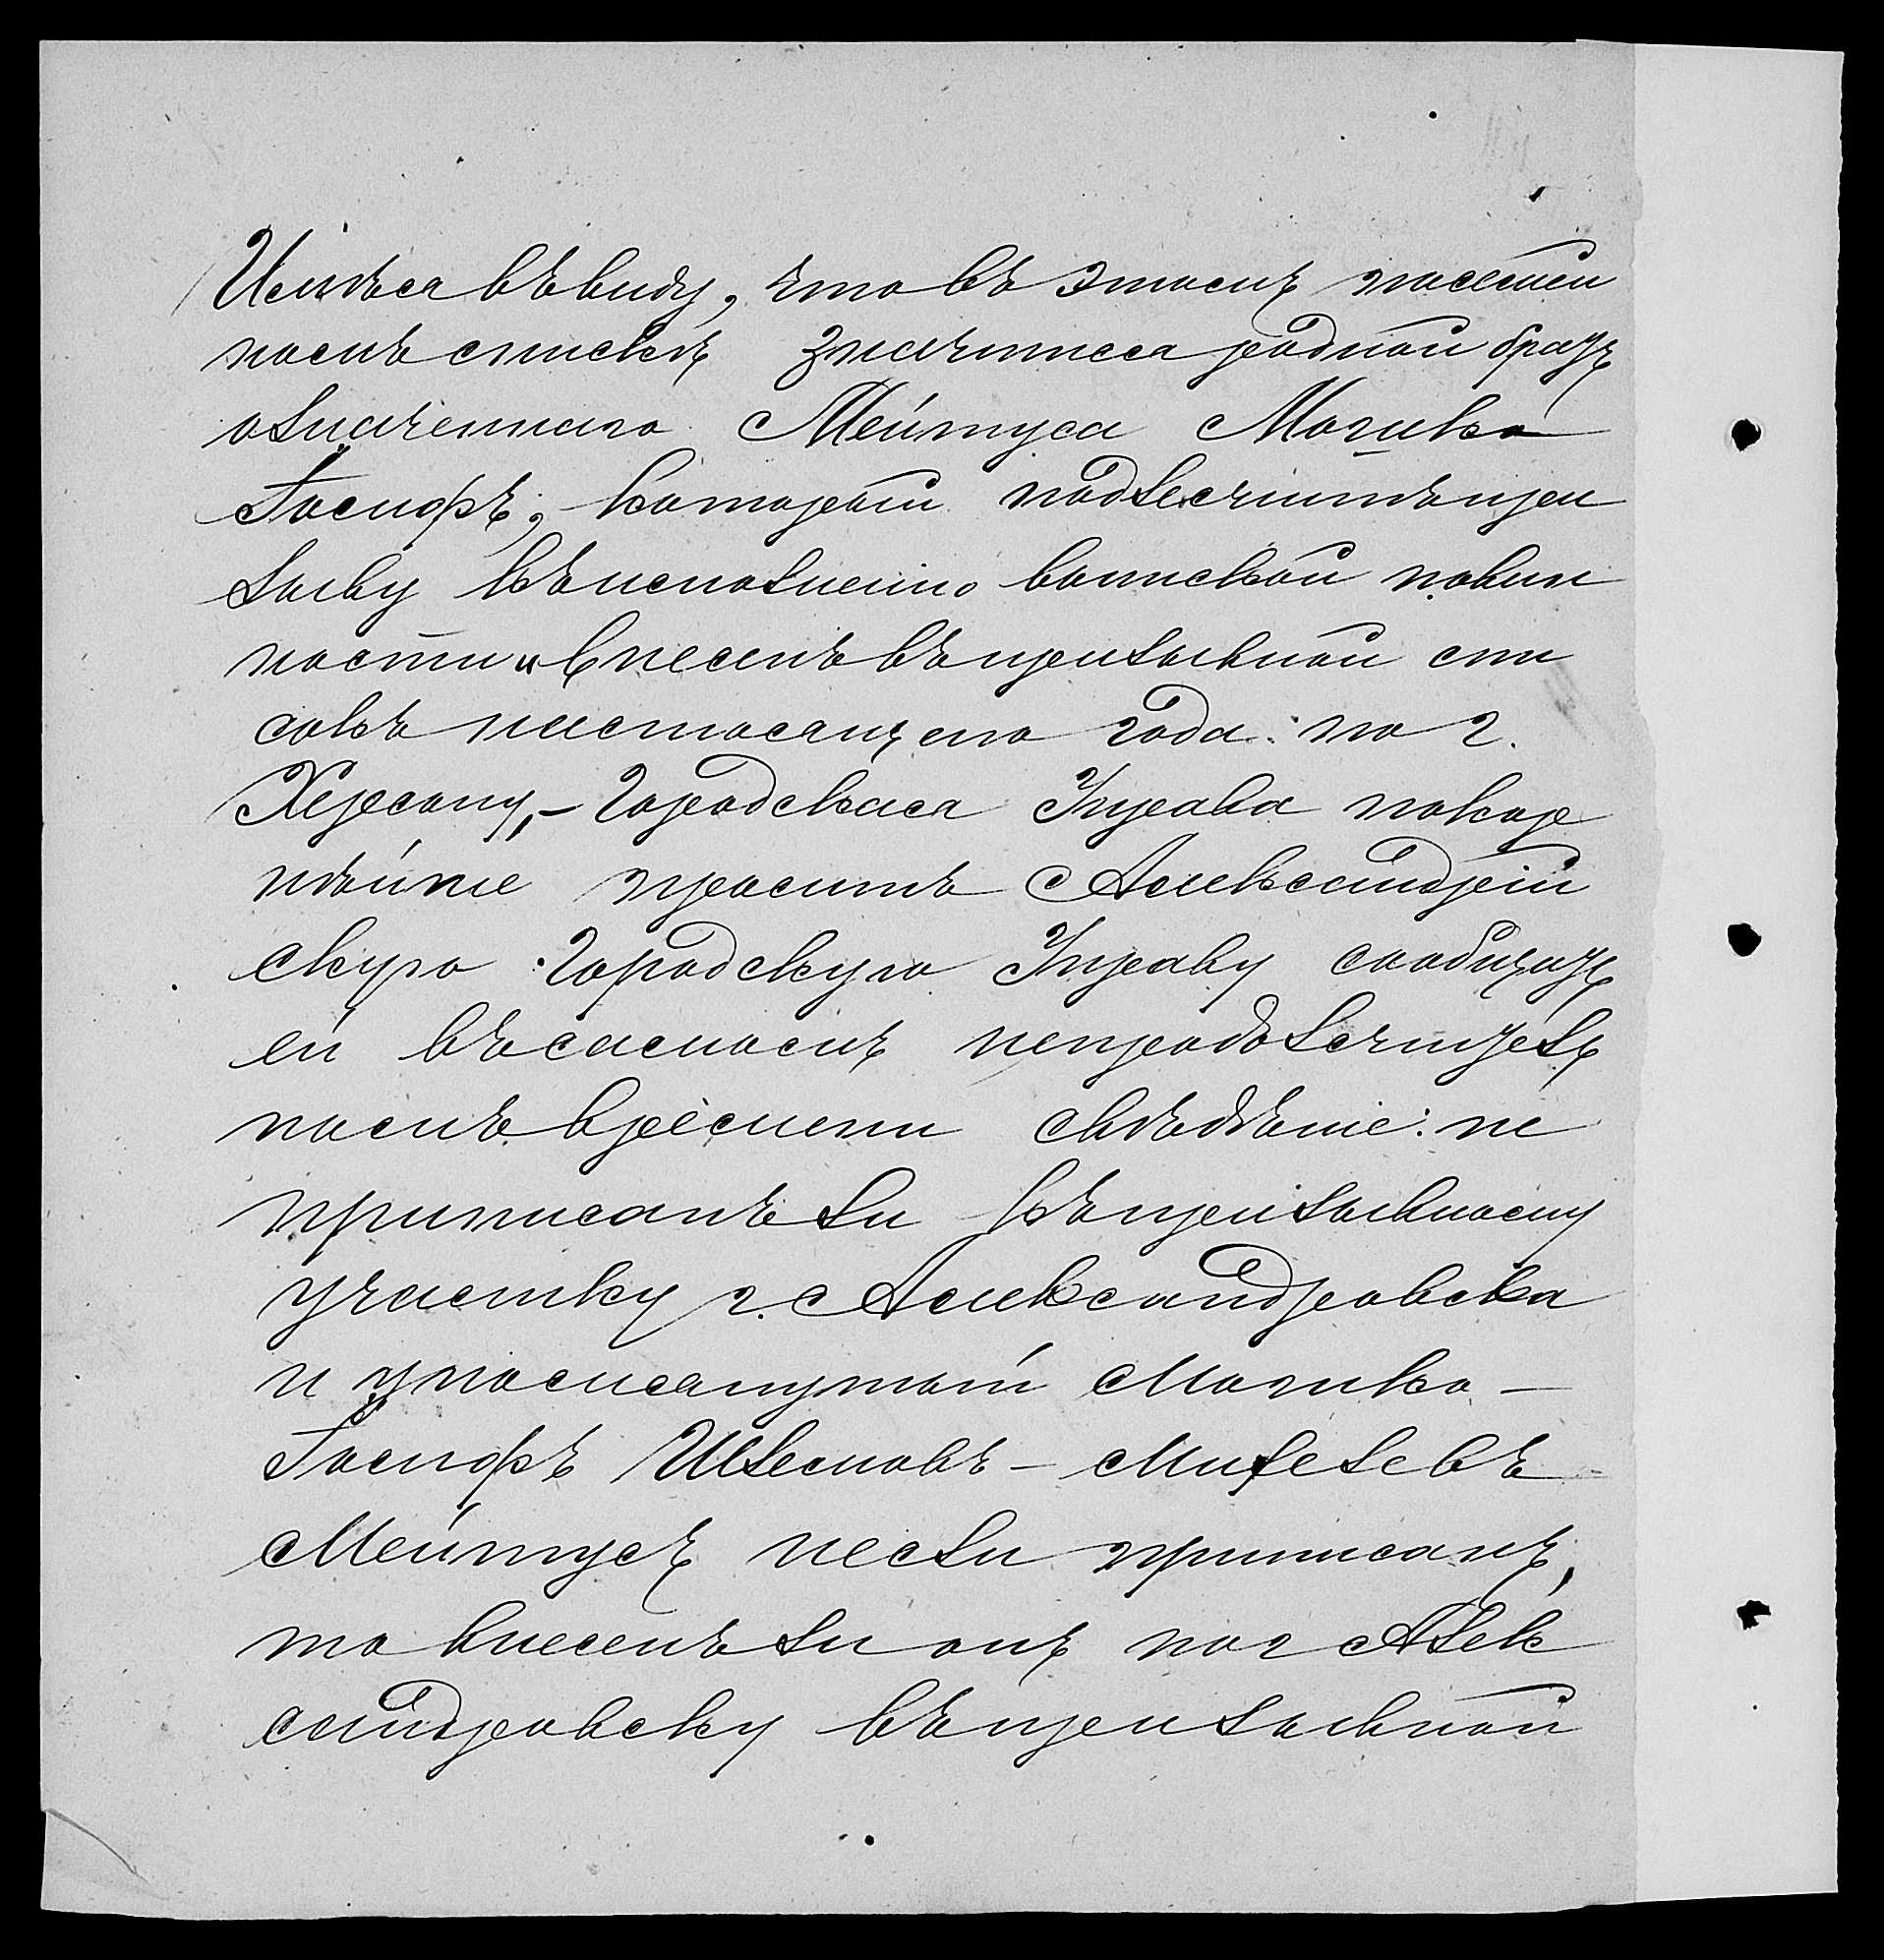 Имѣя въ виду, что въ этомъ посемей
номъ спискѣ значится родной братъ
означеннаго Мейтуса Мошко
Іосифъ, который подлежитъ при
зыву къ исполненію воинской повин
ности и внесенъ въ призывной спи
сокъ настоящаго года по г.
Херсону,- Городская Управа покор
нѣйше проситъ Александрій
скую Городскую Управу сообщить
ей въ самомъ непродолжитель
номъ времени свѣдѣніе: не
приписанъ ли къ призывному
участку г. Александровска
и упомянутый Мошко -
Іосифъ Шлемовъ - Михелевъ
Мейтусъ и если приписанъ,
то внесенъ ли онъ по г Алек
сандровску въ призывной